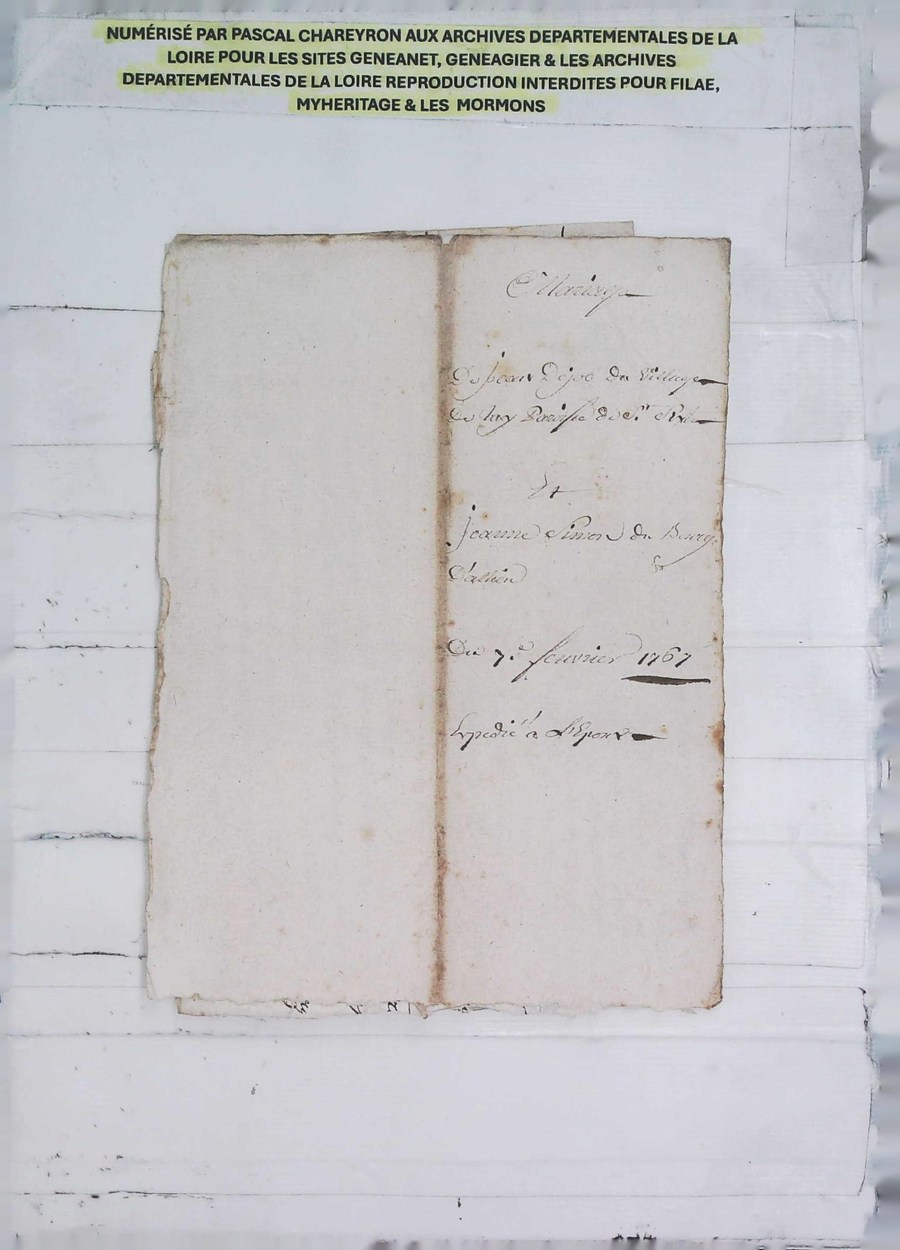 NUMÉRISÉ PAR PASCAL CHAREYRON AUX ARCHIVES DEPARTEMENTALES DE LA
LOIRE POUR LES SITES GENEANET, GENEAGIER & LES ARCHIVES
DEPARTEMENTALES DE LA LOIRE REPRODUCTION INTERDITES POUR FILAE,
MYHERITAGE & LES MORMONS
Mariage
De jean Dejob du Village
de Paroisse de St
Et
jeanne Simon du Bourg
D'allieu
Du 7e fevrier 1767
Expedié a L'Epoux